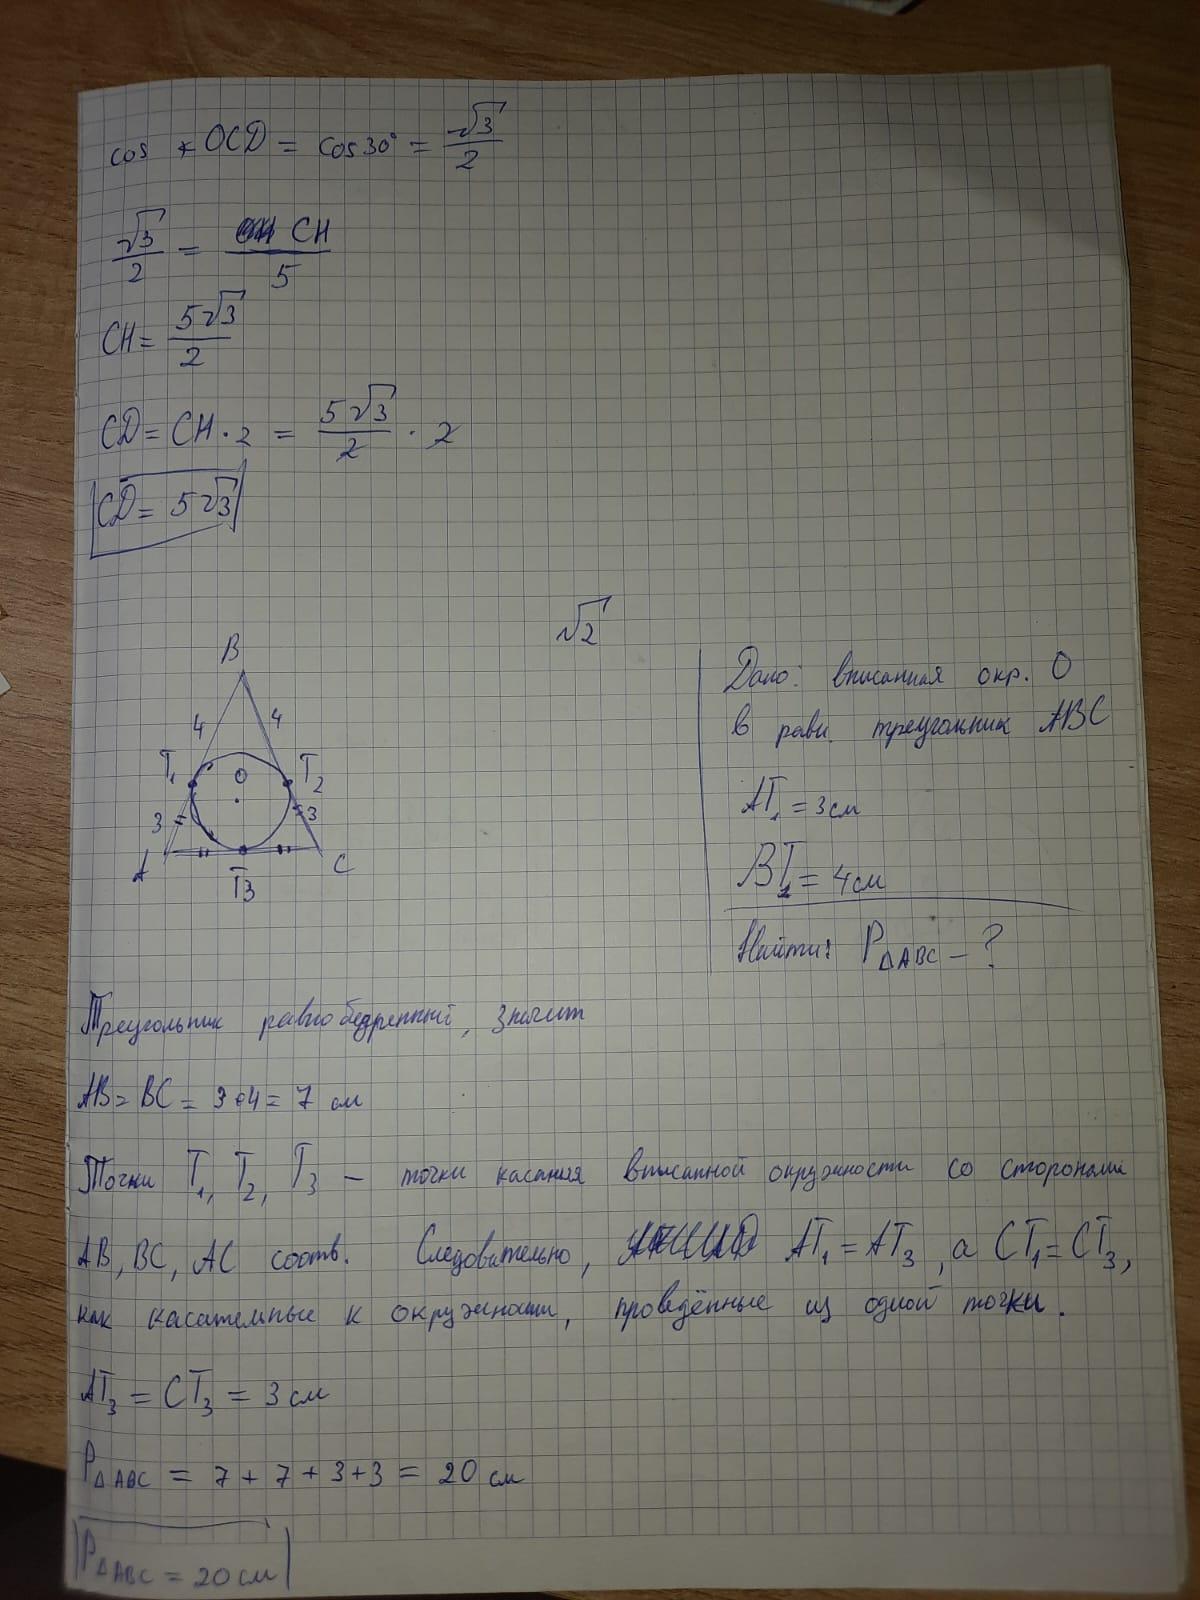 cos ∢ OCD = cos 30° = √3/2
√3/2 = CH/5
CH = 5√3/2
CD = CH · 2 = 5√3/2 · 2
CD = 5√3
√2
B
4 4
T₁ O T₂
3 3
A C
T₃
Дано: вписанная окр. O
в равн. треугольник ABC
AT₁ = 3 см
BT₂ = 4 см
Найти: P△ABC – ?
Треугольник равнобедренный, значит
AB = BC = 3+4 = 7 см
Точки T₁, T₂, T₃ – точки касания вписанной окружности со сторонами
AB, BC, AC соотв. Следовательно, AT₁ = AT₃, а CT₁ = CT₃,
как касательные к окружности, проведённые из одной точки.
AT₃ = CT₃ = 3 см
P△ABC = 7 + 7 + 3 + 3 = 20 см
P△ABC = 20 см